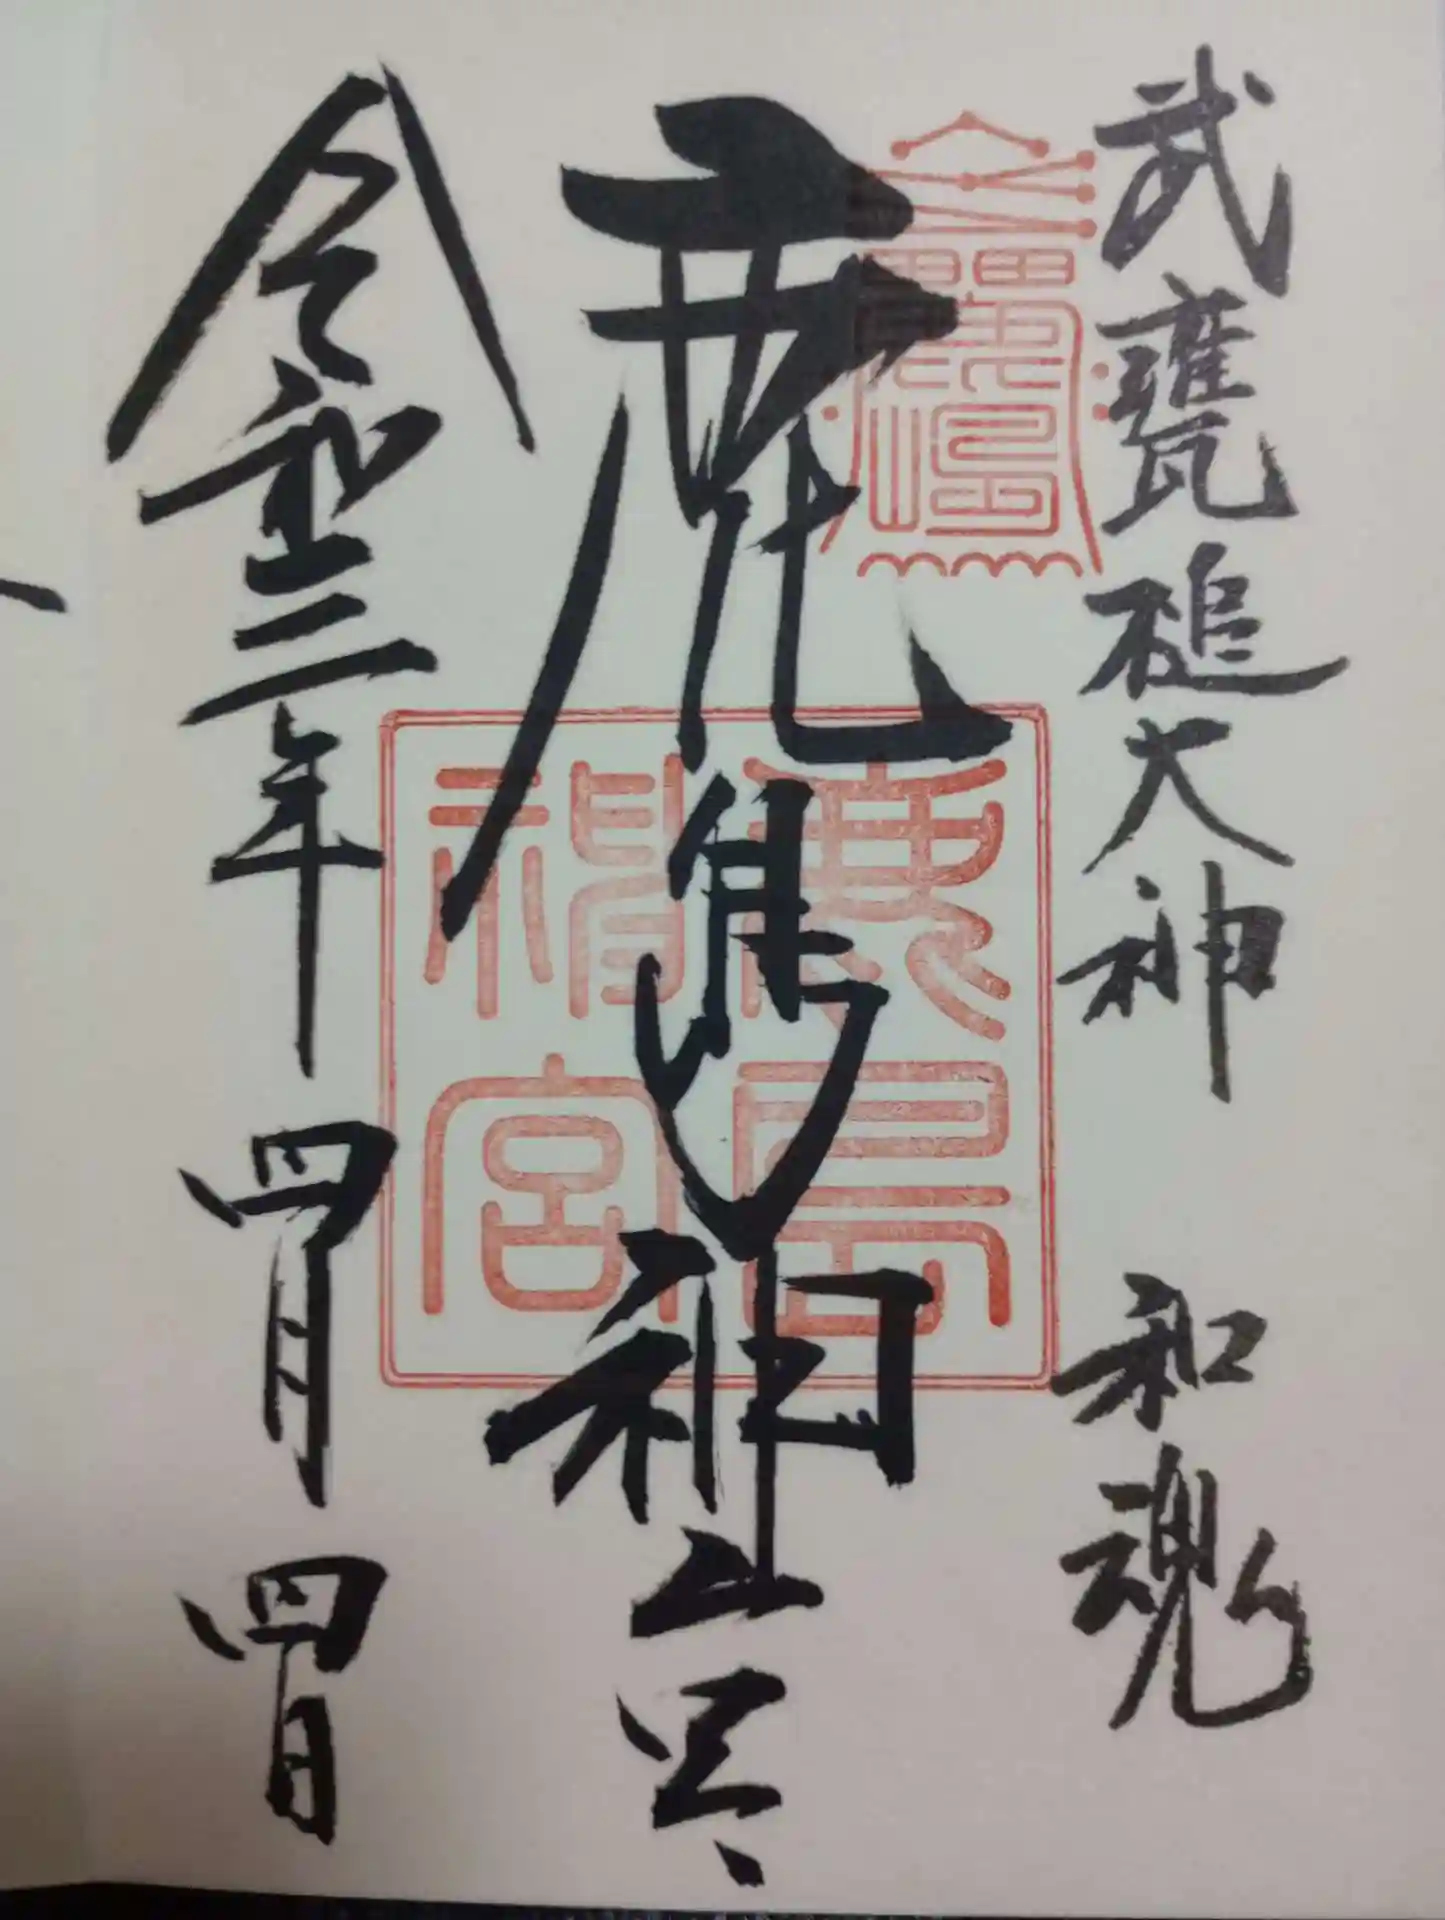 武甕槌大神 和魂
鹿島神宮
令和三年 四月 四日
鹿島
神宮